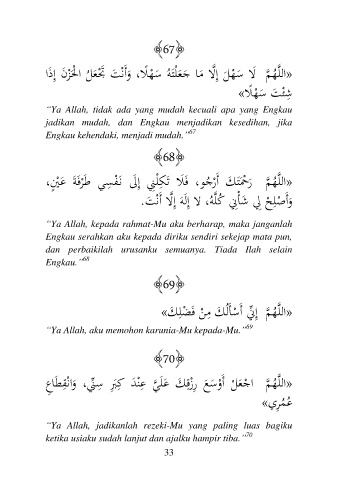 ﴿67﴾
«اللَّهُمَّ لَا سَهْلَ إِلَّا مَا جَعَلْتَهُ سَهْلًا، وَأَنْتَ تَجْعَلُ الْحَزْنَ إِذَا
شِئْتَ سَهْلًا»
"Ya Allah, tidak ada yang mudah kecuali apa yang Engkau
jadikan mudah, dan Engkau menjadikan kesedihan, jika
Engkau kehendaki, menjadi mudah."67
﴿68﴾
«اللَّهُمَّ رَحْمَتَكَ أَرْجُو، فَلَا تَكِلْنِي إِلَى نَفْسِي طَرْفَةَ عَيْنٍ،
وَأَصْلِحْ لِي شَأْنِي كُلَّهُ، لا إِلَهَ إِلَّا أَنْتَ.
"Ya Allah, kepada rahmat-Mu aku berharap, maka janganlah
Engkau serahkan aku kepada diriku sendiri sekejap mata pun,
dan perbaikilah urusanku semuanya. Tiada Ilah selain
Engkau."68
﴿69﴾
«اللَّهُمَّ إِنِّي أَسْأَلُكَ مِنْ فَضْلِكَ»
"Ya Allah, aku memohon karunia-Mu kepada-Mu."69
﴿70﴾
«اللَّهُمَّ اجْعَلْ أَوْسَعَ رِزْقِكَ عَلَيَّ عِنْدَ كِبَرِ سِنِّي، وَانْقِطَاعِ
عُمُرِي»
"Ya Allah, jadikanlah rezeki-Mu yang paling luas bagiku
ketika usiaku sudah lanjut dan ajalku hampir tiba."70
33